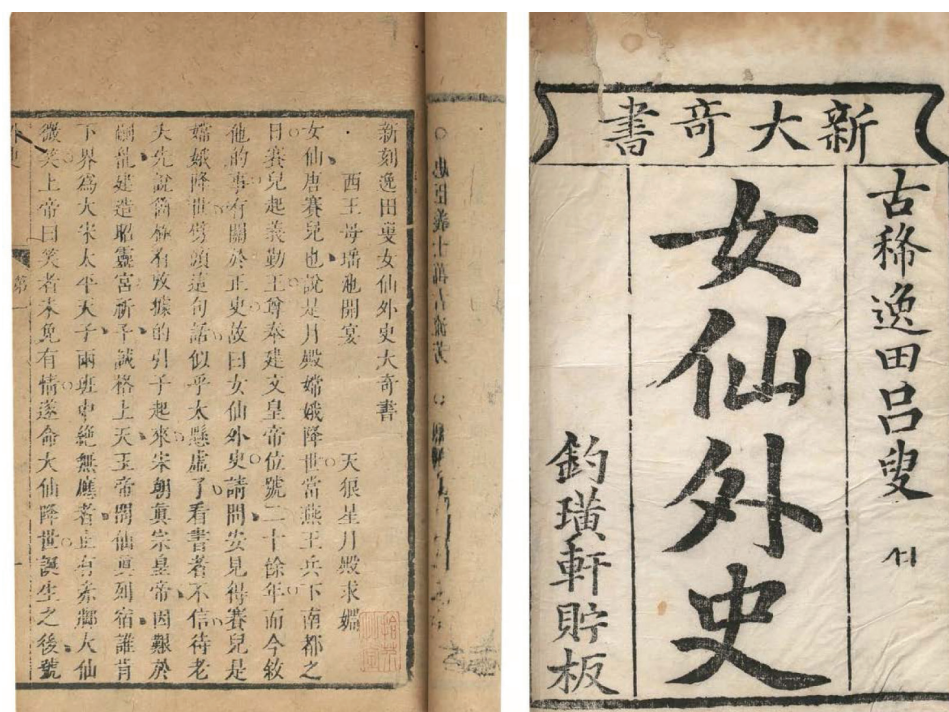 新大奇書
古稀逸田呂叟
女仙外史
釣璜軒貯板
新刻逸田叟女仙外史大奇書
西王母瑤池開宴　天狼星月殿求姻
女仙唐賽兒也說是月殿嫦娥降世當燕王兵下南都之
日賽兒起義勤王尊奉建文皇帝位號二十餘年而今敘
他的事有關於正史故曰女仙外史請問安見得賽兒是
嫦娥降世劈頭這句話似乎太懸虛了看書者不信待老
夫先說箇極有攷據的引子起來宋朝真宗皇帝因艱於
嗣胤建造昭靈宮祈子誠格上天玉帝問仙真列宿誰肯
下界爲大宋太平天子兩班中絶無應者止有赤腳大仙
微笑上帝曰笑者未免有情遂命大仙降世誕生之後號
外史　第一